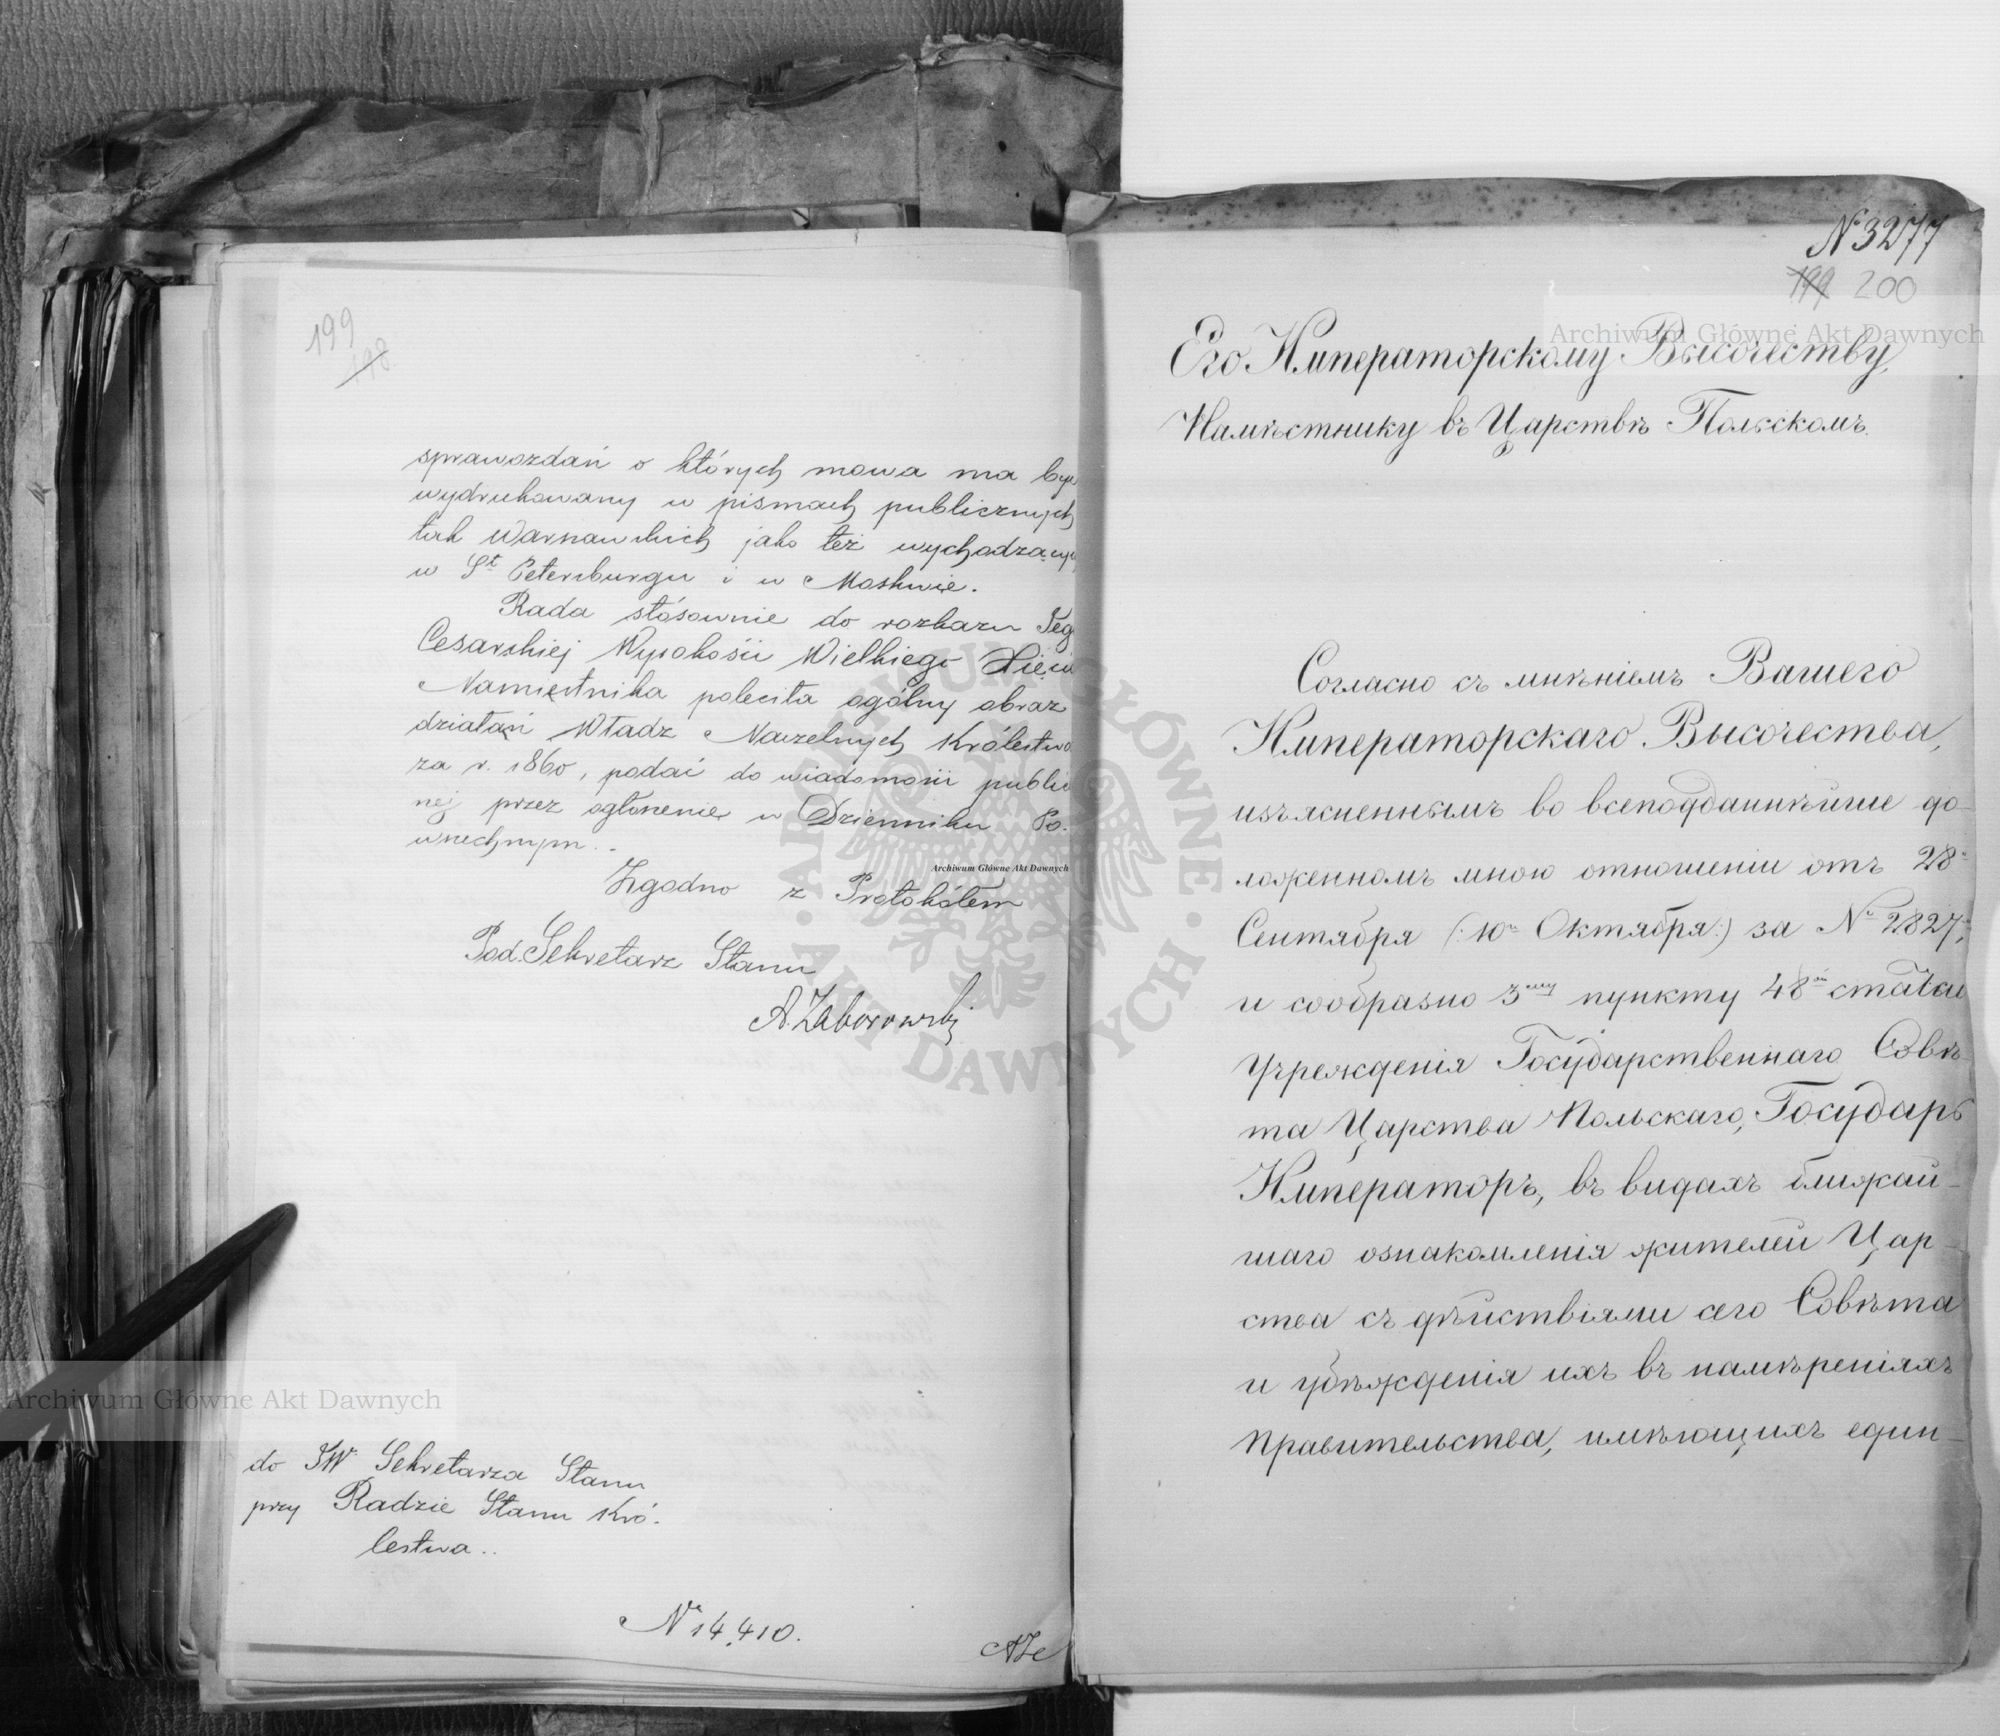 199
198
sprawozdań o których mowa ma być
wydrukowany w pismach publicznych
tak Warszawskich jako też wychodzących
w St Petersburgu i w Moskwie.
Rada stósownie do rozkazu Jego
Cesarskiej Wysokości Wielkiego Xięcia
Namiestnika poleciła ogólny obraz
działań Władz Naczelnych Królestwa
za r. 1860, podać do wiadomości publicz
nej przez ogłoszenie w Dzienniku Po-
wszechnym..
Zgodno z Protokółem
Pod. Sekretarz Stanu
A. Zaborowski
do JW Sekretarza Stanu
przy Radzie Stanu Kró-
lestwa..
№ 14,410.
№ 3277
199 200
Его Императорскому Высочеству,
Намѣстнику въ Царствѣ Польскомъ.
Согласно съ мнѣніемъ Вашего
Императорскаго Высочества,
изъясненнымъ во всеподданнѣйше до-
ложенномъ мною отношеніи отъ 28го
Сентября (: 10го Октября:) за № 2827,
и сообразно 3му пункту 48й статьи
Учрежденія Государственнаго Совѣ-
та Царства Польскаго, Государь
Императоръ, въ видахъ ближай-
шаго ознакомленія жителей Цар-
ства съ дѣйствіями сего Совѣта
и убѣжденія ихъ въ намѣреніяхъ
Правительства, имѣющихъ един-
Archiwum Główne Akt Dawnych
Archiwum Główne Akt Dawnych
Archiwum Główne Akt Dawnych
ARCHIWUM GŁÓWNE AKT DAWNYCH